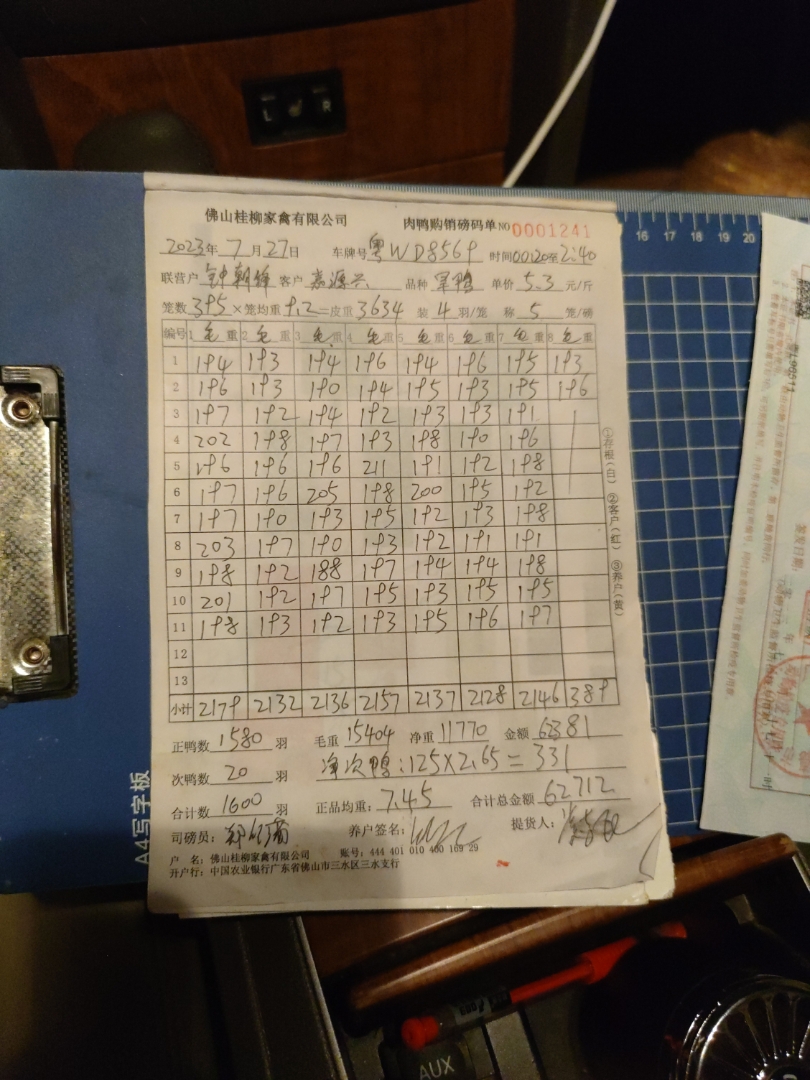 佛山桂柳家禽有限公司 肉鸭购销磅码单 NO 0001241
2023年 7月27日 车牌号 粤WD8569 时间00120至2:40
联营户 钟朝锋 客户 嘉源兴 品种 单价 5.3 元/斤
笼数 395 ×笼均重 9.2 =皮重 3634 装 4 羽/笼 称 5 笼/磅
编号 1 毛重 2 毛重 3 毛重 4 毛重 5 毛重 6 毛重 7 毛重 8 毛重
1 194 193 194 196 194 196 195 193
2 196 193 190 194 195 193 195 196
3 197 192 194 192 193 193 191
4 202 198 197 193 198 190 196
5 196 196 196 211 191 192 198
6 197 196 205 198 200 195 192
7 197 190 193 195 192 193 198
8 203 197 190 193 192 191 191
9 198 192 188 197 194 194 198
10 201 192 197 195 193 195 195
11 198 193 192 193 195 196 197
12
13
小计 2179 2132 2136 2157 2137 2128 2146 389
①存根(白) ②客户(红) ③养户(黄)
正鸭数 1580 羽 毛重 15404 净重 11770 金额 62381
次鸭数 20 羽 净次鸭:125×2.65=331
合计数 1600 羽 正品均重: 7.45 合计总金额 62712
司磅员: 养户签名: 提货人:
户 名: 佛山桂柳家禽有限公司 账号: 444 401 010 400 169 29
开户行: 中国农业银行广东省佛山市三水区三水支行
A4写字板
16 17 18 19 20
L R
AUX